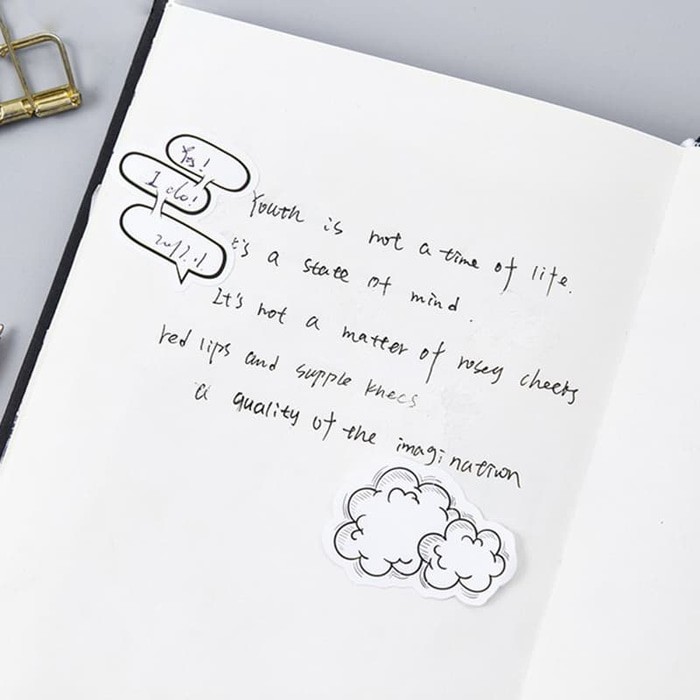 Yes!
I do!
2017.1
Youth is not a time of life.
t's a state of mind.
It's not a matter of rosey cheeks
red lips and supple knees
a quality of the imagination